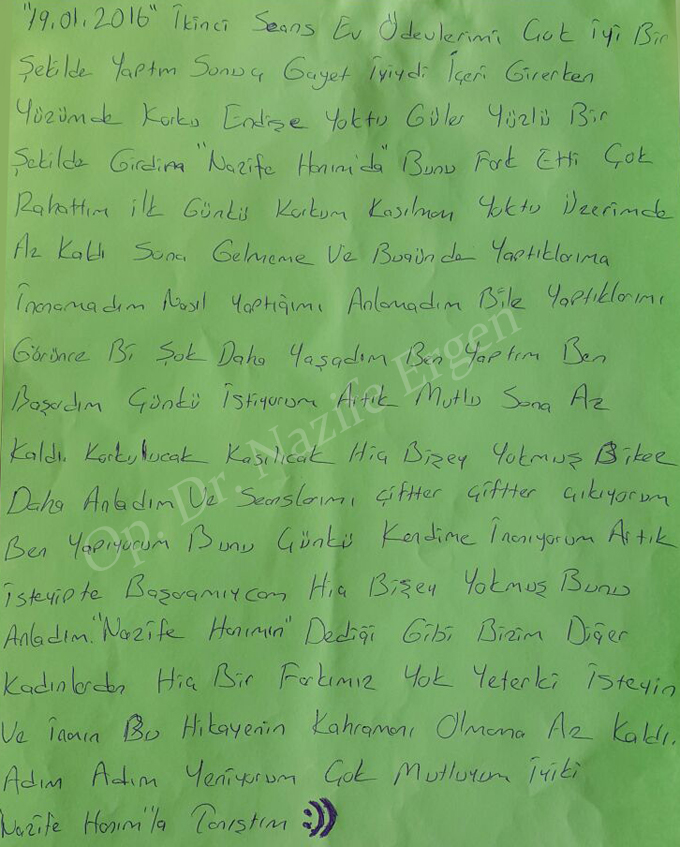 "19.01.2016" İkinci Seans Ev Ödevlerimi Çok İyi Bir
Şekilde Yaptım Sonuç Gayet İyiydi İçeri Girerken
Yüzümde Korku Endişe Yoktu Güler Yüzlü Bir
Şekilde Girdim "Nazife Hanım'da" Bunu Fark Etti Çok
Rahattım ilk Günkü Korkum Kasılmam Yoktu Üzerimde
Az Kaldı Sona Gelmeme Ve Bugünde Yaptıklarıma
İnanamadım Nasıl Yaptığımı Anlamadım Bile Yaptıklarımı
Görünce Bi Şok Daha Yaşadım Ben Yaptım Ben
Başardım Günkü İstiyorum Artık Mutlu Sona Az
Kaldı. Korkulucak Kasılıcak Hiç Bişey Yokmuş Bikez
Daha Anladım Ve Seanslarımı çiftter çiftter çıkıyorum
Ben Yapıyorum Bunu Günkü Kendime İnanıyorum Artık
isteyipte Başaramıycam Hiç Bişey Yokmuş Bunu
Anladım. "Nazife Hanımın" Dediği Gibi Bizim Diğer
Kadınlardan Hiç Bir Farkımız Yok Yeterki İsteyin
Ve İnanın Bu Hikayenin Kahramanı Olmama Az Kaldı.
Adım Adım Yeniyorum Çok Mutluyum İyiki
Nazife Hanım'la Tanıştım :)))
Op. Dr. Nazife Ergen